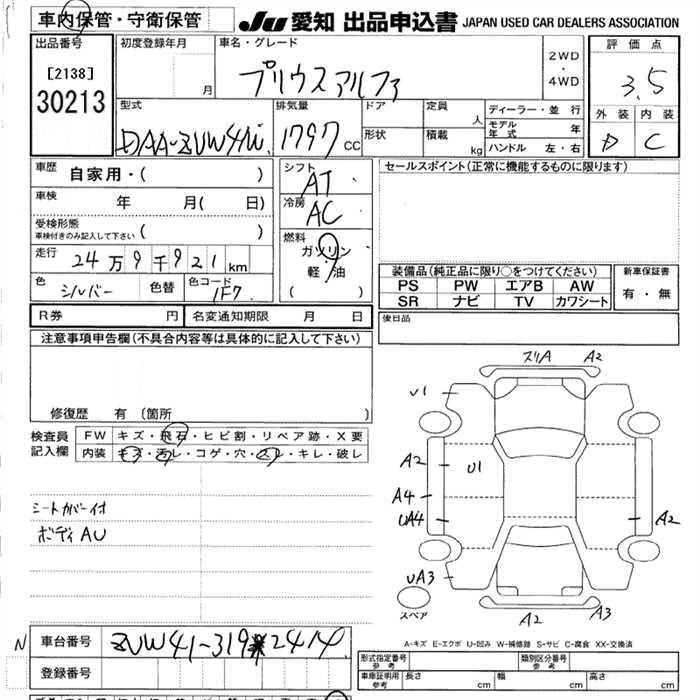 車内保管・守衛保管
JU 愛知 出品申込書 JAPAN USED CAR DEALERS ASSOCIATION
出品番号
[2138]
30213
初度登録年月
月
車名・グレード
プリウスアルファ
2WD
・
4WD
評価点
3.5
外装 内装
D C
型式
DAA-ZVW41W
排気量
1797 CC
ドア
形状
定員
人
積載
kg
ディーラー・並行
モデル年式 年
ハンドル 左・右
車歴
自家用・( )
車検
年 月( 日)
受検形態
車検付きのみ記入して下さい ( )
走行
24万9千921km
色
シルバー
色替
色コード
1F7
シフト
AT
冷房
AC
燃料
ガソリン
・
軽油
( )
セールスポイント(正常に機能するものに限ります)
装備品(純正品に限り○をつけてください)
PS PW エアB AW
SR ナビ TV カワシート
新車保証書
有・無
後日品
R券 円
名変通知期限 月 日
注意事項申告欄(不具合内容等は具体的に記入して下さい)
修復歴 有(箇所 )
検査員記入欄
FW キズ・飛石・ヒビ割・リペア跡・X要
内装 キズ・汚レ・コゲ・穴・スレ・キレ・破レ
シートカバー付
ボディAU
スリA A2
U1
A2
U1
A4
UA4
A2
UA3
スペア
A2
A3
A-キズ E-エクボ U-凹み W-補修跡 S-サビ C-腐食 XX-交換済
N
車台番号
ZVW41-319※2414
登録番号
形式指定番号
参考
類別区分番号
参考
車庫証明用
参考
長さ cm
幅 cm
高さ cm